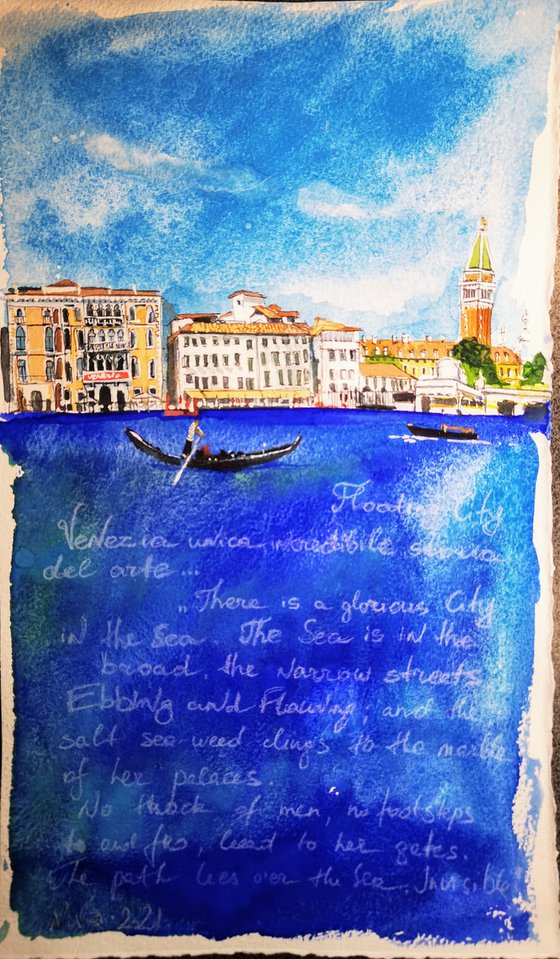 Floating City
Venezia unica, incredibile storia
del arte...
„There is a glorious City
in the Sea. The Sea is in the
broad, the narrow streets,
Ebbing and Flowing; and the
salt sea-weed clings to the marble
of her palaces.
No track of men, no footsteps
to and fro, lead to her gates.
The path lies o'er the Sea, Invisible